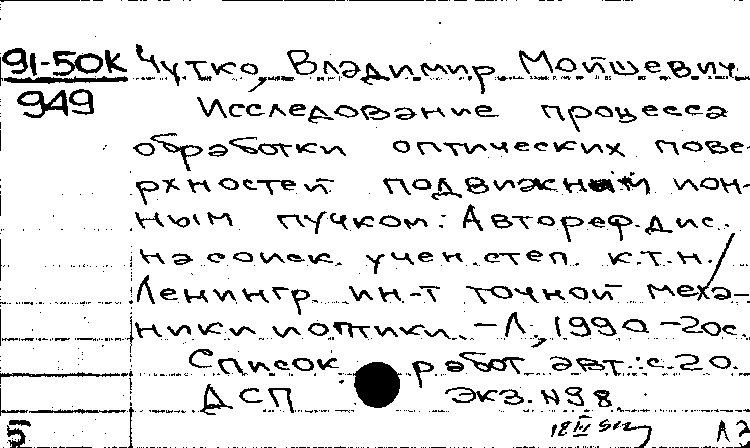 91-50К Чутко, Владимир Мойшевич
949 Исследование процесса
обработки оптических пове-
рхностей подвижным ион-
ным пучком: Автореф.дис.
на соиск. учен.степ. к.т.н./
Ленингр. ин-т точной меха-
ники и оптики. – Л., 1990 – 20с.
Список работ авт.: с.20.
ДСП экз. N98
5